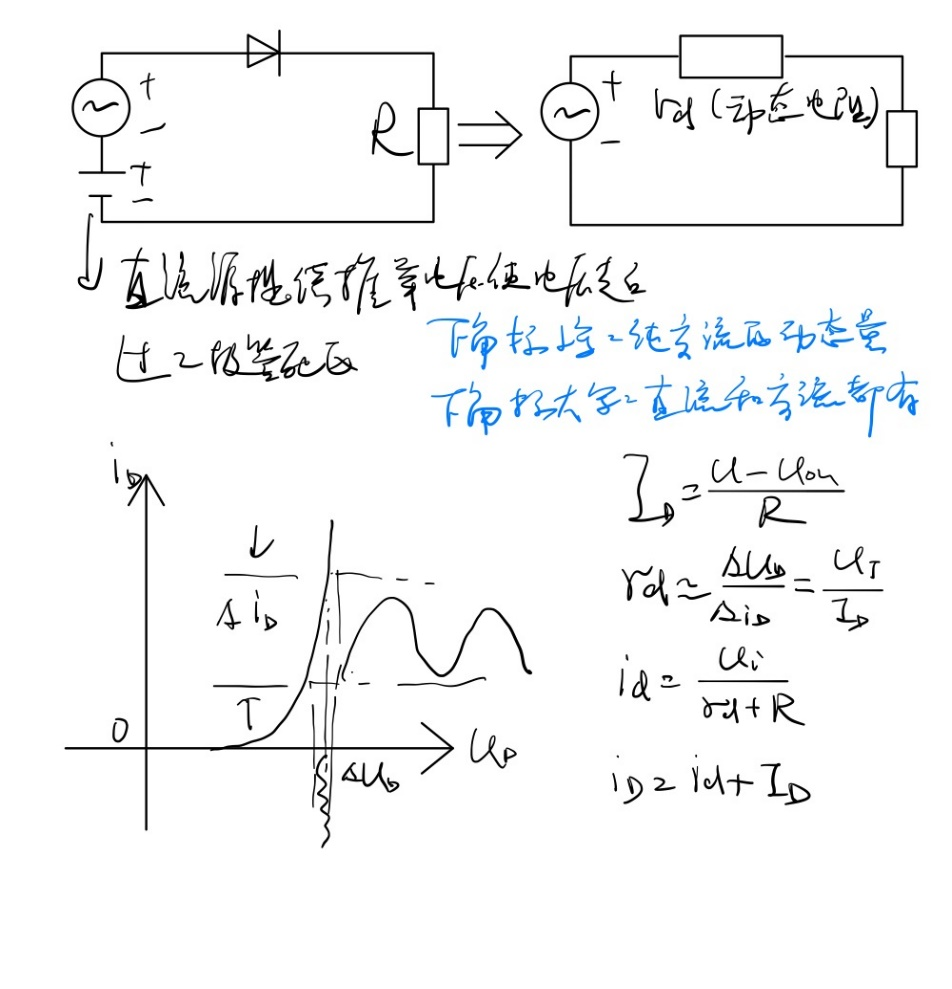 +
−
+
−
R
+
−
rd (动态电阻)
直流源提供推举电压使电压走右
过二极管死区
下角标小写:纯交流的动态量
下角标大写:直流和交流都有
iD
ΔiD
0
ΔUD
UD
ID = (U − Uon) / R
rd ≃ ΔUD / ΔiD = UT / ID
id = Ui / (rd + R)
iD = id + ID